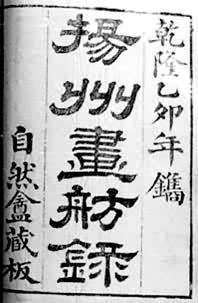 乾隆乙卯年鐫
揚州畫舫録
自然盦藏板